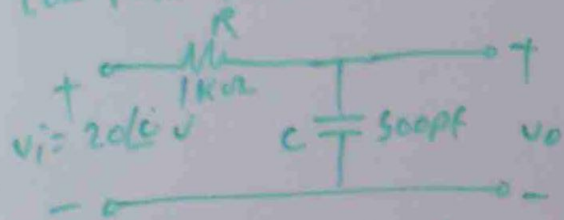 R
+ 1KΩ +
vi = 20∠0 v C 500pf vo
- -